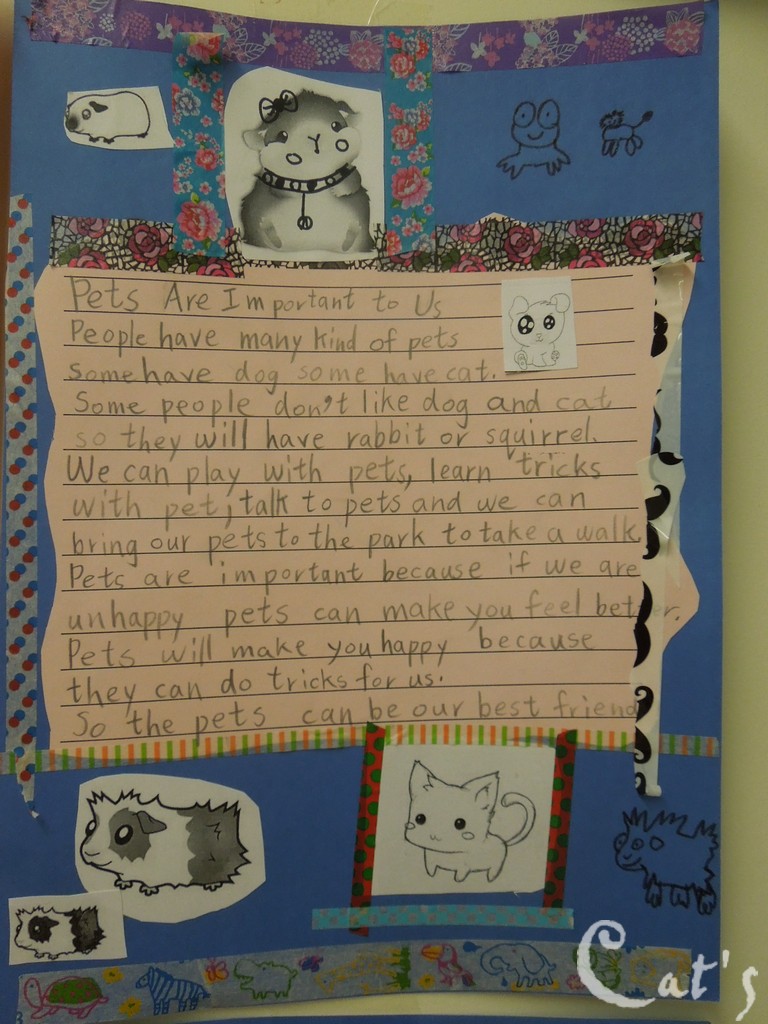 Pets Are Important to Us
People have many kind of pets
some have dog some have cat.
Some people don't like dog and cat
so they will have rabbit or squirrel.
We can play with pets, learn tricks
with pet, talk to pets and we can
bring our pets to the park to take a walk
Pets are important because if we are
unhappy pets can make you feel better.
Pets will make you happy because
they can do tricks for us.
So the pets can be our best friend
Cat's